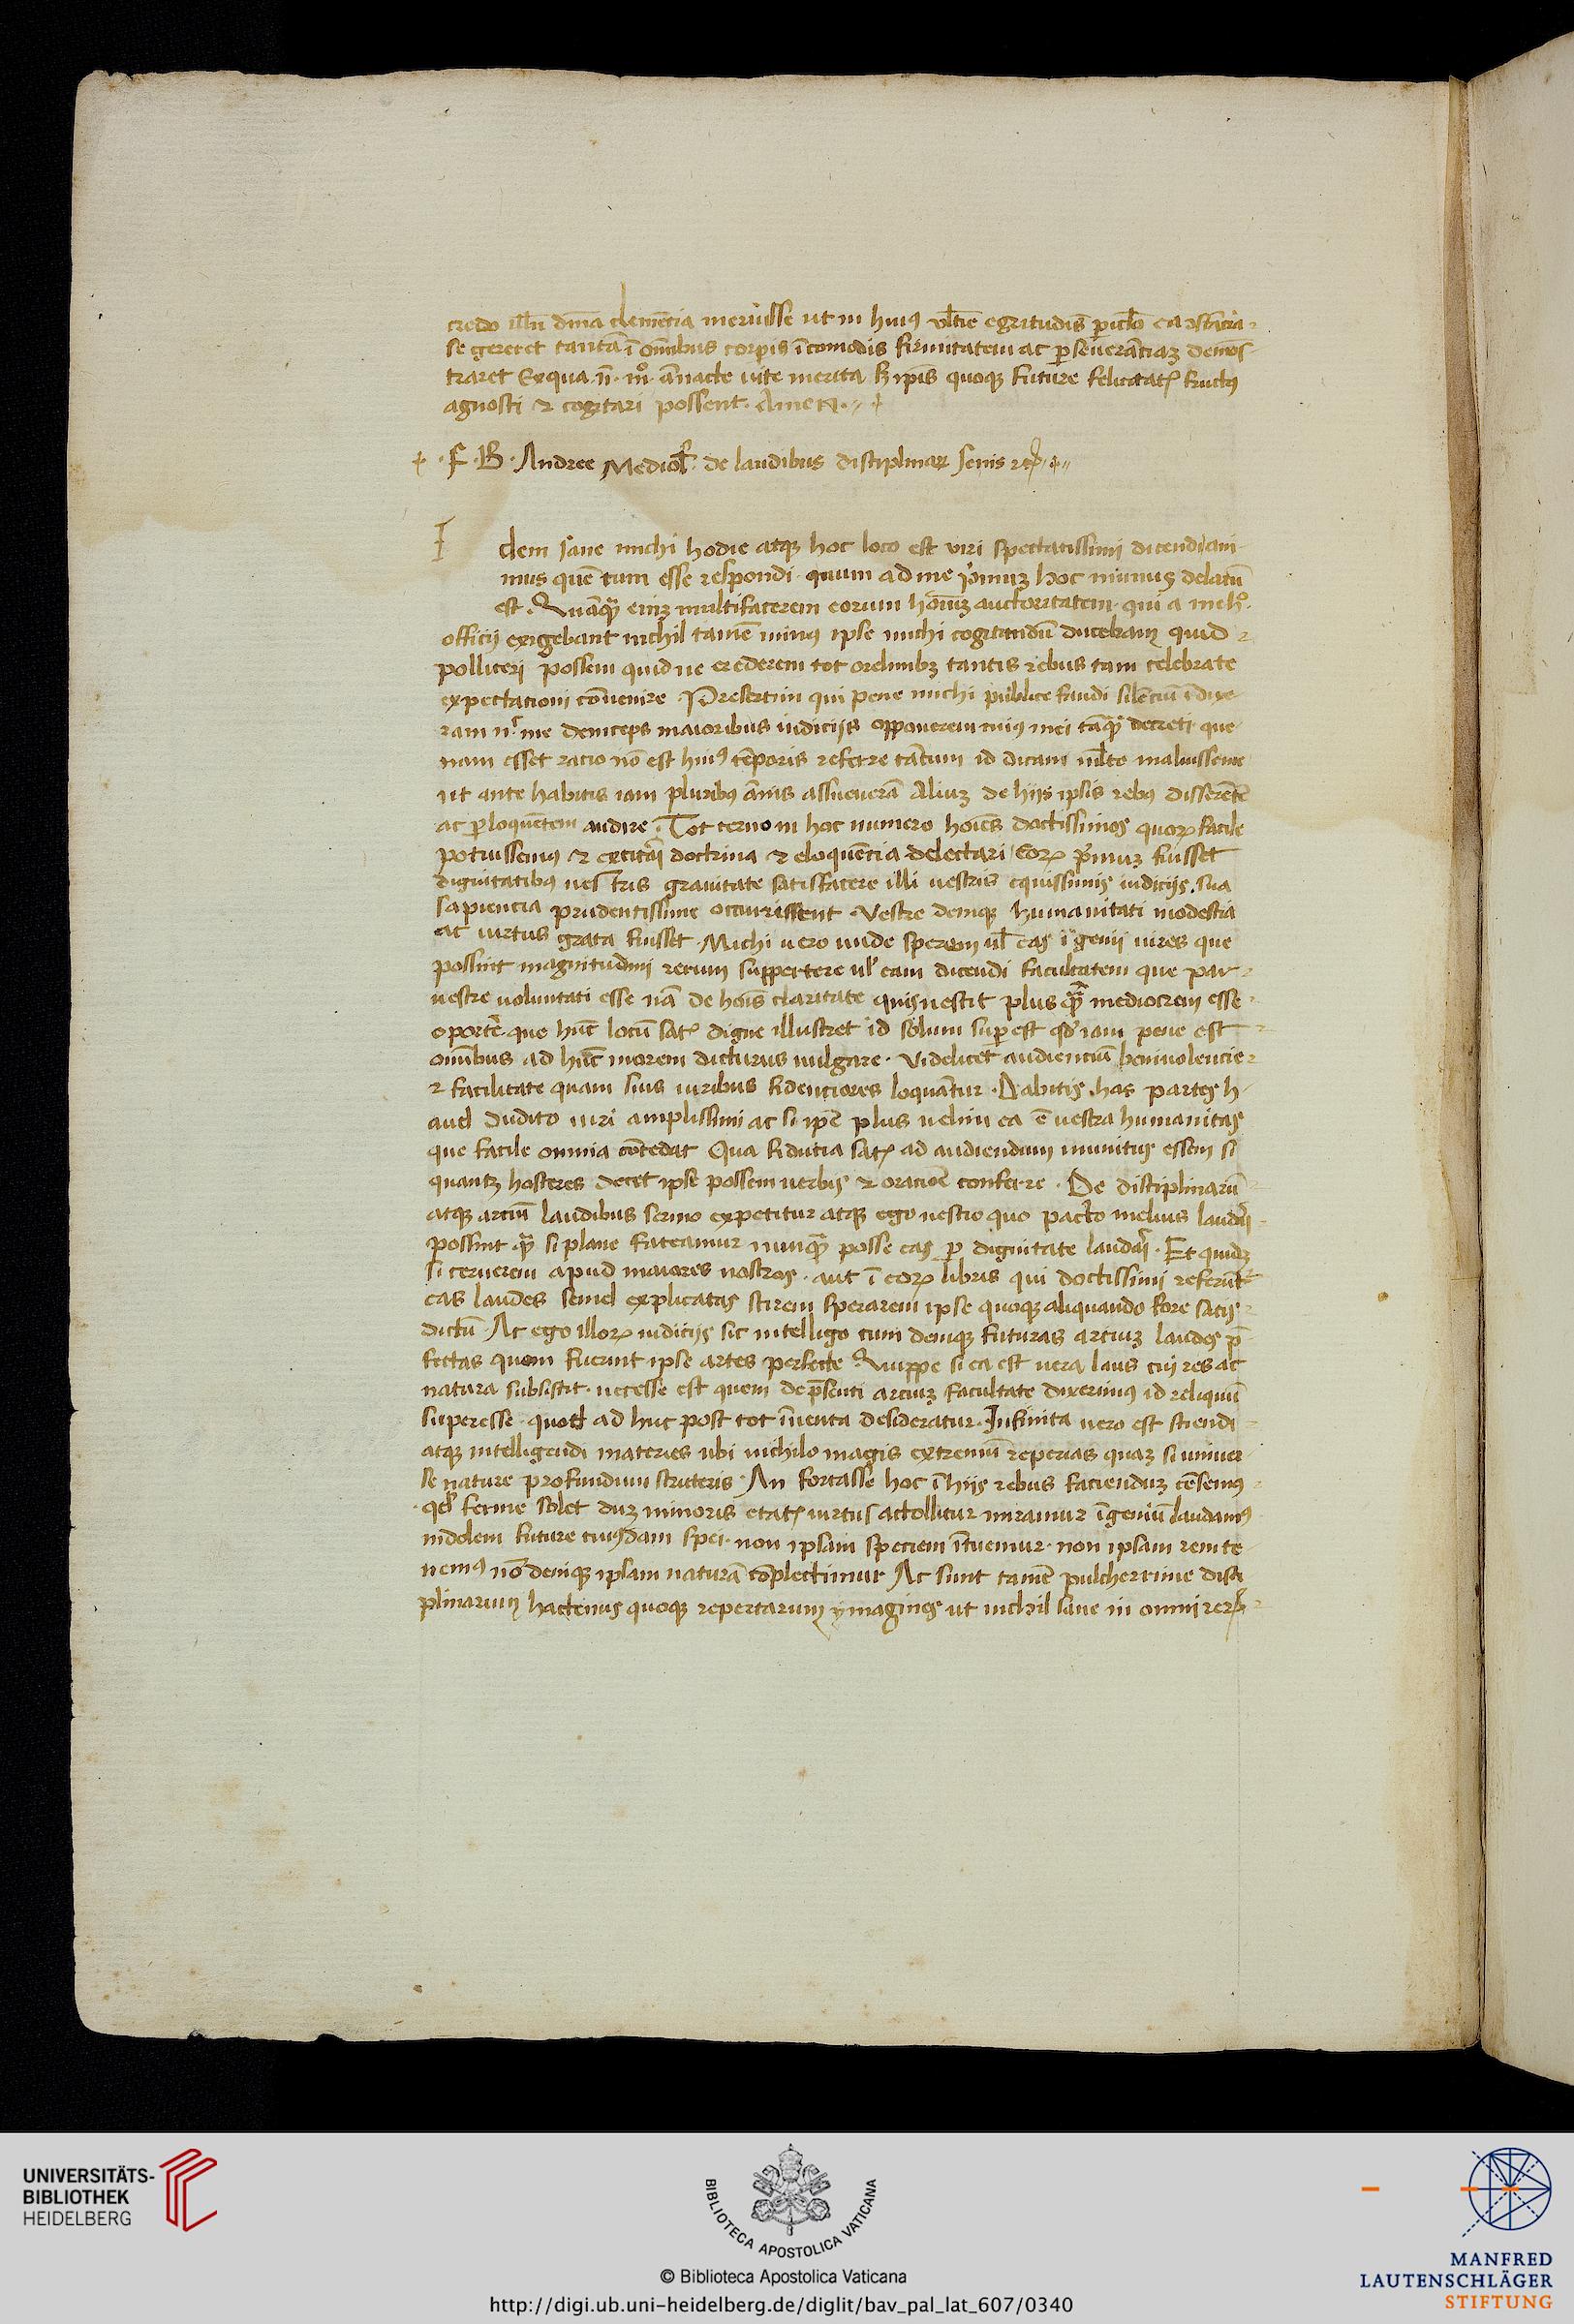 credo illū dīna clemētia meruisse ut in huiꝰ ultīe egritudīs pīclo ea ꝯstācia
se gereret tantā ī omībus corpīs īcomodis firmitatem ac ꝑseuerāciaꝫ demōs-
traret Ex qua .n̄. mō. āñacte uite merita sꝫ ipīs quoqꝫ future felicitatꝭ fructꝰ
agnosci ⁊ cogitari possent. Amen.
F. B. Andree Mediol. de laudibus disciplinaꝝ senis
I
dem sane michi hodie atqꝫ hoc loco est viri spectatissimi dicendi ani-
mus quē tum esse respondi. quum ad me pͥmuꝫ hoc munus delatū
est. Quāqꝫ eniꝫ multifacerem eorum hoīuꝫ auctoritatem. qui a me hͦ.
officij exigebant nichil tamē minꝰ ipse michi cogitandū ducebam quid
polliceri possem quid ue crederem tot ordinibꝫ tantis rebus tam celebrate
expectacioni cōuenire. Presertim qui pene michi publice fandi silenciū īdixe-
ram nͬ me deinceps maioribus iudicijs opponerem cuiꝰ mei tāqꝫ decreti que-
nam esset racio nō est huiꝰ tēporis referre tātum id dicam mlto maluissem
ut ante habitis iam pluribꝰ ānis assueuerā Aliuꝫ de hijs ipsis rebꝰ disserētē
ac ꝑloquētem audire. Tot cerno in hoc numero hoīes doctissimos quoꝝ facile
potuissemus ⁊ doctrina ⁊ eloquēcia delectari Eoꝝ pͥmuꝫ fuisset
dignitatibꝰ nestris grauitate satisfacere illi uestris equissimis iudicijs. sua
sapiencia prudentissime occurrissent. Vestre deniqꝫ humanitati modestia
ac uirtus grata fuisset. Michi uero unde sperem ul eas īgenij uires que
possint magnitudini rerum suppertere ul eam dicendi facultatem que par
uestre uoluntati esse nā de hoīs claritate quis nescit plus qꝫ mediocrem esse
oportere. que hūc locū satꝭ digne illustret id solum suꝑest qd iam pene est
omībus ad hūc morem dicturus uulgare. Videlicet audienciū beniuolencie
⁊ facilitate quam suis uiribus fidenciores loquātur. Dabitis has partes h-
aud dubito uiri amplissimi ac si ipē plus uelim ea ē uestra humanitas
que facile omnia cōcedat Qua fiducia satꝭ ad audiendum munitus essem si
quantꝫ hosteres decet ipse possem uerbis ⁊ oracioē conferre. De disciplinarū
atqꝫ arciū laudibus sermo expetitur atqꝫ ego nescio quo pacto melius laudari
possint qꝫ si plane fateamur nunqꝫ posse eas ꝑ dignitate laudari. Et quidꝫ
si cernerem apud maiores nostros. aut ī eoꝝ libris qui doctissimi referūt
eas laudes semel explicatas scirem sperarem ipse quoqꝫ aliquando fore satis
dictū. Ac ego illoꝝ iudicijs sic intelligo tum deniqꝫ futuras arciuꝫ laudes ꝑ-
fectas quom fuerint ipse artes perfecte. Quippe si ea est uera laus cui res ac
natura subsistit. necesse est quom de pͥsenti arciuꝫ facultate dixerimꝰ id reliquū
superesse. quod ad huc post tot īuenta desideratur. Infinita uero est sciendi
atqꝫ intelligendi materies ubi nichilo magis extremū reperias quaꝫ si uniuer-
se nature profundum scruteris. An fortasse hoc ī hijs rebus faciendūꝫ cēsemꝰ
qd ferme solet duꝫ minoris etatꝭ uirtus actollitur miramur īgeniū laudamꝰ
indolem future cuiusdam spei. non ipsam speciem ītuemur. non ipsam rem te-
nemꝰ nō deniqꝫ ipsam naturā cōplectimur Ac sunt tamē pulcherrime disci
plinarum hactenus quoqꝫ repertarum ymagines ut nichil sane in omni reꝝ
UNIVERSITÄTS-
BIBLIOTHEK
HEIDELBERG
BIBLIOTECA APOSTOLICA VATICANA
© Biblioteca Apostolica Vaticana
http://digi.ub.uni-heidelberg.de/diglit/bav_pal_lat_607/0340
MANFRED
LAUTENSCHLÄGER
STIFTUNG